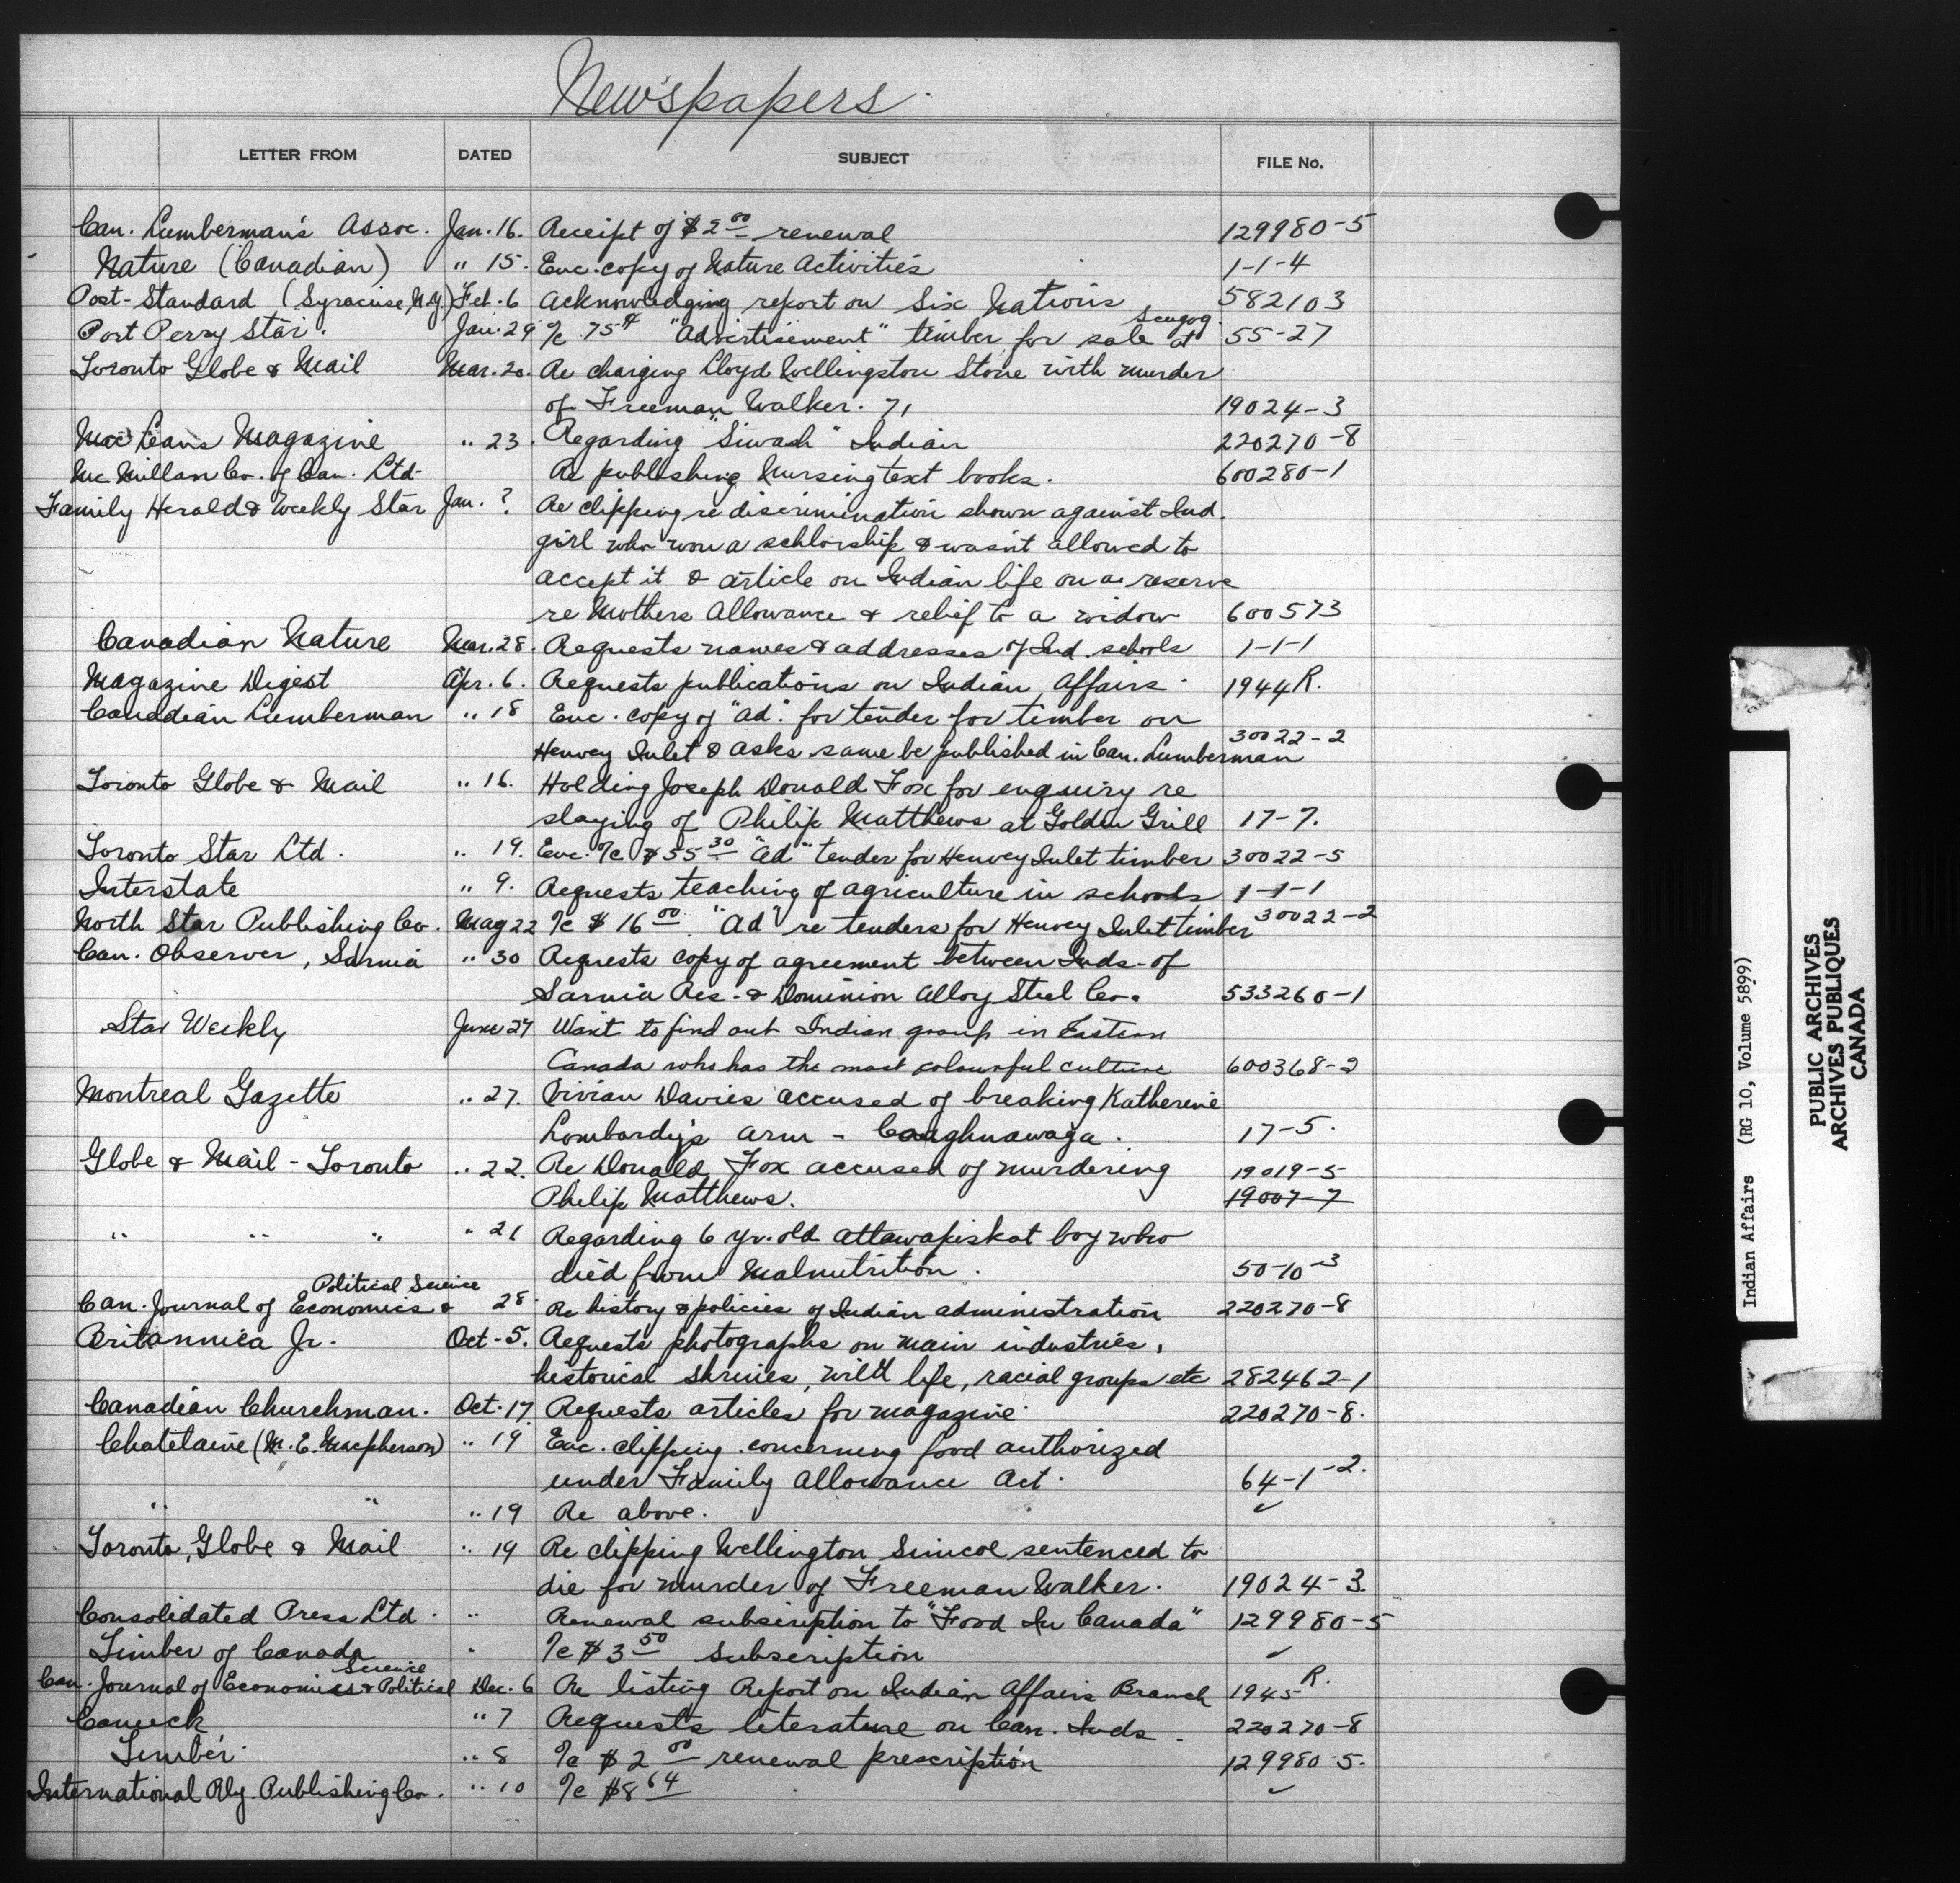 Newspapers.
LETTER FROM DATED SUBJECT FILE No.
Can. Lumberman's Assoc. Jan. 16. Receipt of $2 00 renewal 129980-5
Nature (Canadian) " 15. Enc. copy of Nature Activities 1-1-4
Post-Standard (Syracuse, N.Y.) Feb. 6 Acknowledging report on Six Nations 582103
Port Perry Star. Jan. 29 %c 75¢ "Advertisement" timber for sale at Scugog. 55-27
Toronto Globe & Mail Mar. 20. Re charging Lloyd Wellingston Stone with murder
of Freeman Walker. 71 19024-3
MacLeans Magazine " 23. Regarding "Siwash" Indian 220270-8
McMillan Co. of Can. Ltd- Re publishing Nursing text books. 600280-1
Family Herald & Weekly Star Jan. ? Re clipping re discrimination shown against Ind.
girl who won a schlorship & wasn't allowed to
accept it & article on Indian life on a reserve
re Mothers Allowance & relief to a widow 600573
Canadian Nature Mar. 28. Requests names & addresses of Ind. schools 1-1-1
Magazine Digest Apr. 6. Requests publications on Indian Affairs. 1944 R.
Canadian Lumberman " 18 Enc. copy of "ad". for tender for timber on
Henvey Inlet & asks same be published in Can. Lumberman 30022-2
Toronto Globe & Mail " 16. Holding Joseph Donald Fox for enquiry re
slaying of Philip Matthews at Golden Grill 17-7.
Toronto Star Ltd. " 19. Enc. %c $55 30 "Ad" tender for Henvey Inlet timber 30022-5
Interstate " 9. Requests teaching of agriculture in schools 1-1-1
North Star Publishing Co. May 22 %c $16 00. "Ad" re tenders for Henvey Inlet timber 30022-2
Can. Observer, Sarnia " 30 Requests copy of agreement between Inds. of
Sarnia Res. & Dominion Alloy Steel Co. 533260-1
Star Weekly June 27 Want to find out Indian group in Eastern
Canada who has the most colourful culture 600368-2
Montreal Gazette " 27. Vivian Davies accused of breaking Katherine
Lombardy's arm - Caughnawaga. 17-5.
Globe & Mail - Toronto " 22. Re Donald Fox accused of murdering 19019-5
Philip Matthews. 19007-7
" " " " 21 Regarding 6 yr. old Attawapiskat boy who
died from Malnutrition. 50-10-3
Can. Journal of Economics & Political Science 28. Re history & policies of Indian administration 220270-8
Britannica Jr. Oct-5. Requests photographs on main industries,
historical shrines, wild life, racial groups etc 282462-1
Canadian Churchman. Oct. 17. Requests articles for magazine. 220270-8.
Chatelaine (M. E. Macpherson) " 19 Enc. clipping concerning food authorized
under Family Allowance Act. 64-1-2.
" " " 19 Re above. ✓
Toronto, Globe & Mail " 19 Re clipping Wellington Simcoe sentenced to
die for murder of Freeman Walker. 19024-3.
Consolidated Press Ltd. " Renewal subscription to "Food In Canada" 129980-5
Timber of Canada " %c $3 50 subscription ✓
Can. Journal of Economics & Political Science Dec. 6 Re listing Report on Indian Affairs Branch 1945 R.
Canuck " 7 Requests literature on Can. Inds. 220270-8
Timber. " 8 %c $2 00 renewal prescription 129980-5.
International Rly. Publishing Co. " 10 %c $8 64 ✓
Indian Affairs (RG 10, Volume 5899)
PUBLIC ARCHIVES
ARCHIVES PUBLIQUES
CANADA